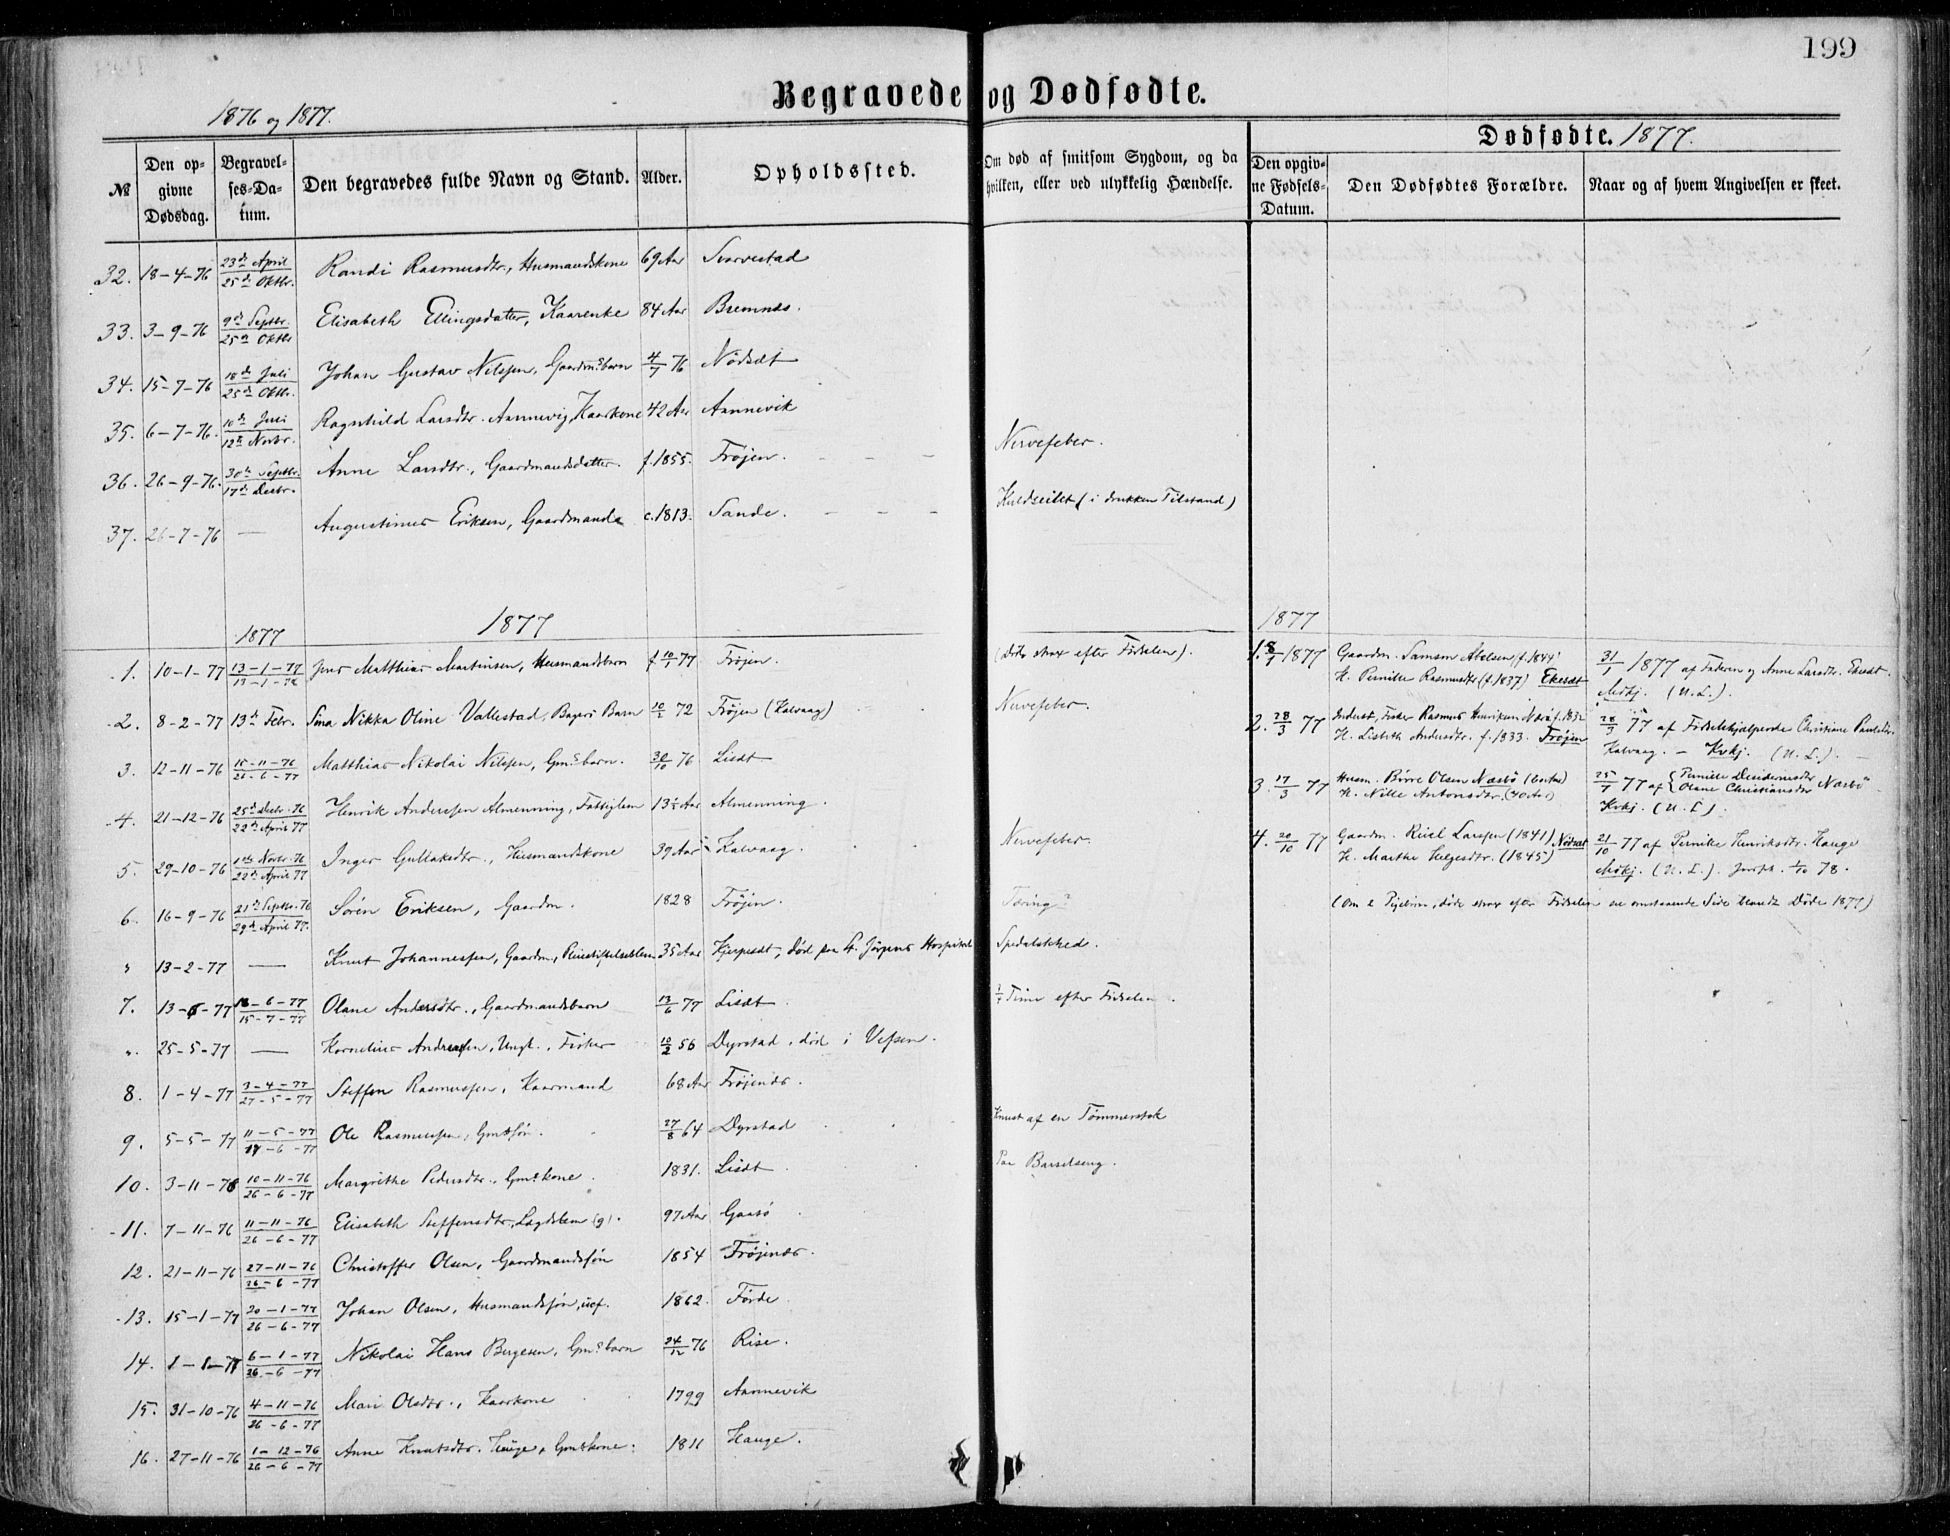 199
Begravede og Dødfødte.
1876 og 1877.
Dødfødte. 1877.
№
Den opgivne Dødsdag.
Begravelses-Datum.
Den begravedes fulde Navn og Stand.
Alder.
Opholdssted.
Om død af smitsom Sygdom, og da hvilken, eller ved ulykkelig Hændelse.
Den opgivne Fødsels-Datum.
Den Dødfødtes Forældre.
Naar og af hvem Angivelsen er skeet.
32. 18-4-76 23de April 25de Oktbr. Randi Rasmusdtr., Husmandskone 69 Aar
33. 3-9-76 9de Septbr. 25de Oktbr Elisabeth Ellingsdatter, Kaarenke 84 Aar Bremnes.
34. 15-7-76 18de Juli 25de Oktbr. Johan Gustav Nilssen, Gaardms barn 4/7 76 Nødsæt
35. 6-7-76. 10de Juli 12te Novbr. Ragnhild Larsdtr. Aannevig, Kaarkone 42 Aar Aannevik
36. 26-9-76. 30te Septbr. 17de Decbr. Anne Larsdtr., Gaardmandsdatter. f. 1855. Frøjen. - - - Nervefeber.
37. 26-7-76 — Augustinus Eriksen, Gaardmand c. 1813. Sande. - - - Kuldseilet (i drukken Tilstand)
1877
1877
1877
1. 10-1-77 13-1-77 13-1-78 Jens Matthias Martinsen, Husmandsbarn f. 10/1 77 Frøjen. (Døde strax efter Fødselen).
2. 8-2-77 13de Febr. Sina Nikka Oline Vallestad, Barn 10/2 72 Frøjen (Kalvaag) Nervefeber.
3. 12-11-76 15-11-76 26-6-77 Matthias Nikolai Nilssen, Gms barn. 30/10 76 Lisæt
4. 21-12-76 25de Decbr. 76 22de April 77 Henrik Anderssen Almenning, Fattiglem Almenning.
5. 29-10-76 1ste Novbr. 76 22de April 77 Inger Gullaksdtr., Husmandskone 39 Aar Kalvaag. Nervefeber.
6. 16-9-76 21de Septbr. 76 29de April 77. Sørén Eriksen, Gaardm. 1828 Frøjen. Tæring?
" 13-2-77 — Knut Johannessen, Gaardm., 35 Aar Kjerpesæt, død paa St. Jørgens Hospital Spedalskhed.
7. 13-6-77 18-6-77 15-7-77 Olane Andersdtr., Gaardmandsbarn 13/6 77 Lisæt. Time efter Fødselen.
". 25-5-77 — Kornelius Andreassen, Ungk., Fisker 10/2 56 Dyrstad. død i Vefsen.
8. 1-4-77 3-4-77 27-5-77 Steffen Rasmussen, Kaarmand 68 Aar Frøjenæs.
9. 5-5-77 11-5-77 17-6-77 Ole Rasmussen, Gmdsøn. 27/8 64 Dyrstad Knust af en Tømmerstok
10. 3-11-76 10-11-76 26-6-77 Margrethe Pedersdtr., Gms kone. 1831. Lisæt Paa Barselseng.
11. 7-11-76 11-11-76 26-6-77 Elisabeth Steffensdtr., Lægdslem (g). 97 Aar Gaasø
12. 21-11-76 27-11-76 26-6-77 Christoffer Olsen, Gaardmandssøn 1854 Frøjenæs.
13. 15-1-77 20-1-77 26-6-77 Johan Olsen, Husmandssøn, ucf. 1862. Førde.
14. 1-1-77 6-1-77 26-6-77 Nikolai Hans Bergesen, Gms barn 24/12 76 Rise.
15. 31-10-76 4-11-76 26-6-77 Mari Olsdtr., Kaarkone 1799 Aannevik
16. 27-11-76 1-12-76 26-6-77 Anne Knutsdtr. Hauge, Gmskone. 1811 Hauge.
1. 8/1 1877 Gaardm. Samson Abelsen (f. 1844) H. Pernille Rasmusdtr (f. 1837) Ekesæt 31/1 1877 af Faderen og Anne Larsdtr. Ekesæt. (U. L.).
2. 28/3 77 Inderst, Fisker Rasmus Henriksen f. 1832 H. Lisbeth Andersdtr. f. 1833. Frøjen 28/3 77 af Fødselshjælperske Christiane Kalvaag. — Kvkj. (U. L.).
3. 17/3 77 Husm. Børre Olsen Næsbø H. Nille Antonsdtr. (40 Aar) 25/7 77 af Pernille Olane Christiansdtr Næsbø Kvkj. (U. L).
4. 20/10 77 Gaardm. Larssen (1841) H. Marthe Helgesdtr. (1845) Nødsæt 21/10 77 af Pernille Henriksdtr. Hauge (U. L.). 78.
(Om 2 Pigebørn, døde strax efter Fødselen se omstaaende Side blandt Døde 1877)